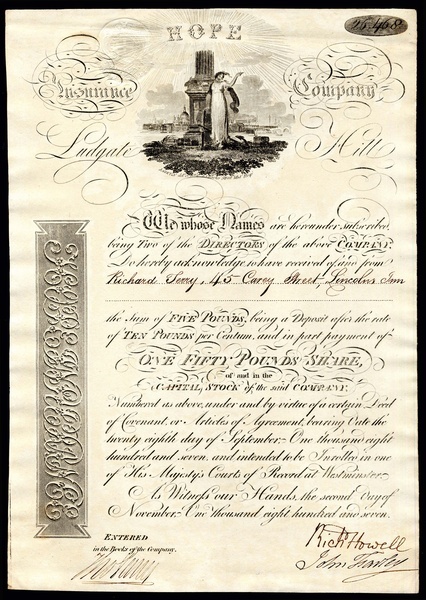 26,468
HOPE
Insurance Company
Ludgate Hill
We whose Names are hereunder subscribed,
being Two of the DIRECTORS of the above COMPANY,
Do hereby acknowledge to have received of and from
Richard 45 Carey Street, Lincolns Inn
the Sum of FIVE POUNDS, being a Deposit after the rate
of TEN POUNDS per Centum, and in part payment of
ONE FIFTY POUNDS SHARE,
of and in the
CAPITAL STOCK of the said COMPANY,
Numbered as above, under and by virtue of a certain Deed
of Covenant, or Articles of Agreement, bearing Date the
twenty eighth day of September One thousand eight
hundred and seven, and intended to be Inrolled in one
of His Majesty's Courts of Record at Westminster.
As Witness our Hands, the second day of
November One thousand eight hundred and seven.
ENTERED
in the Books of the Company.
Richd Howell
John